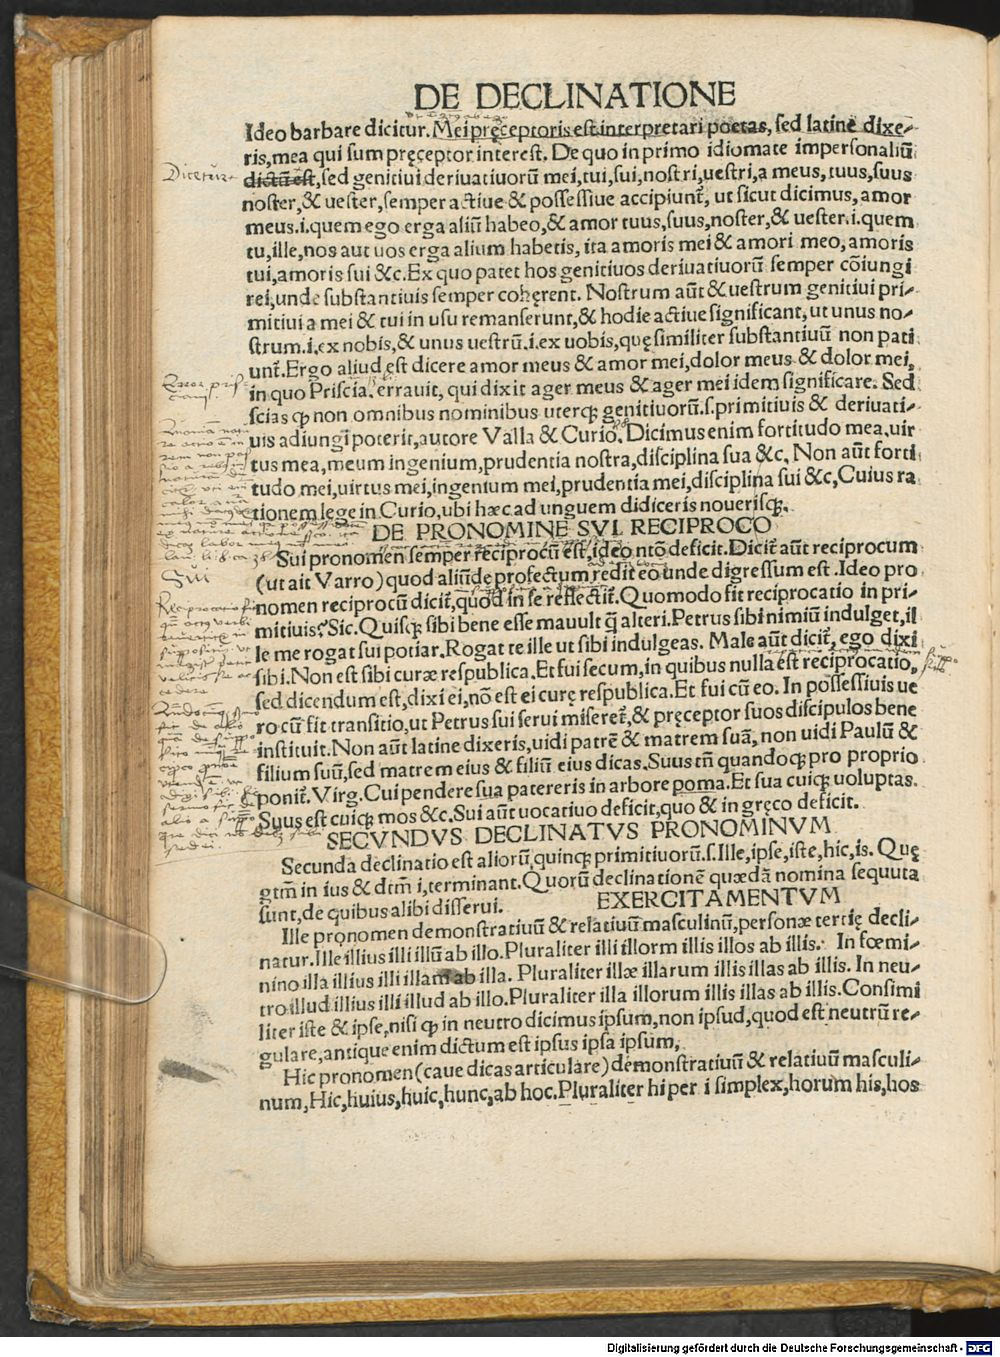 DE DECLINATIONE
Ideo barbare dicitur. Mei pręceptoris est interpretari poetas, sed latine dixe⸗
ris, mea qui sum pręceptor interest. De quo in primo idiomate impersonaliū
Dicetur
dictū est, sed genitiui deriuatiuorū mei, tui, sui, nostri, uestri, a meus, tuus, suus
noster, & uester, semper actiue & possessiue accipiunt᷑, ut sicut dicimus, amor
meus .i. quem ego erga aliū habeo, & amor tuus, suus, noster, & uester .i. quem
tu, ille, nos aut uos erga alium habetis, ita amoris mei & amori meo, amoris
tui, amoris sui &c. Ex quo patet hos genitiuos deriuatiuorū semper cōiungi
rei, unde substantiuis semper cohęrent. Nostrum aūt & uestrum genitiui pri⸗
mitiui a mei & tui in usu remanserunt, & hodie actiue significant, ut unus no⸗
strum .i. ex nobis, & unus uestrū .i. ex uobis, quę similiter substantiuū non pati
unt᷑. Ergo aliud est dicere amor meus & amor mei, dolor meus & dolor mei,
in quo Priscia. errauit, qui dixit ager meus & ager mei idem significare. Sed
scias ꝙ non omnibus nominibus uterqꝫ genitiuorū .s. primitiuis & deriuati⸗
uis adiungi poterit, autore Valla & Curio. Dicimus enim fortitudo mea, uir
tus mea, meum ingenium, prudentia nostra, disciplina sua &c. Non aūt forti
tudo mei, uirtus mei, ingenium mei, prudentia mei, disciplina sui &c, Cuius ra
tionem lege in Curio, ubi hæc ad unguem didiceris nouerisqꝫ.
DE PRONOMINE SVI RECIPROCO
Sui
Sui pronomen semper reciprocū est, ideo ntō deficit. Dicit᷑ aūt reciprocum
(ut ait Varro) quod aliūde profectum redit eo unde digressum est. Ideo pro
nomen reciprocū dicit᷑, quod in se reflectit᷑. Quomodo fit reciprocatio in pri⸗
mitiuis? Sic. Quisqꝫ sibi bene esse mauult q̄ alteri. Petrus sibi nimiū indulget, il
le me rogat sui potiar. Rogat te ille ut sibi indulgeas. Male aūt dicit᷑, ego dixi
sibi. Non est sibi curæ respublica. Et fui secum, in quibus nulla est reciprocatio,
sed dicendum est, dixi ei, nō est ei curę respublica. Et fui cū eo. In possessiuis ue
ro cū fit transitio, ut Petrus sui serui miseret᷑, & pręceptor suos discipulos bene
instituit. Non aūt latine dixeris, uidi patrē & matrem suā, non uidi Paulū &
filium suū, sed matrem eius & filiū eius dicas. Suus tn̄ quandoqꝫ pro proprio
ponit᷑. Virg. Cui pendere sua patereris in arbore poma. Et sua cuiqꝫ uoluptas.
Suus est cuiqꝫ mos &c. Sui aūt uocatiuo deficit, quo & in gręco deficit.
SECVNDVS DECLINATVS PRONOMINVM
Secunda declinatio est aliorū, quinqꝫ primitiuorū .s. Ille, ipse, iste, hic, is. Quę
gtm̄ in ius & dtm̄ i, terminant. Quorū declinationē quædā nomina sequuta
sunt, de quibus alibi disserui.
EXERCITAMENTVM
Ille pronomen demonstratiuū & relatiuū masculinū, personæ tertię decli⸗
natur. Ille illius illi illū ab illo. Pluraliter illi illorm illis illos ab illis. In fœmi⸗
nino illa illius illi illam ab illa. Pluraliter illæ illarum illis illas ab illis. In neu⸗
tro illud illius illi illud ab illo. Pluraliter illa illorum illis illas ab illis. Consimi
liter iste & ipse, nisi ꝙ in neutro dicimus ipsum, non ipsud, quod est neutrū re⸗
gulare, antique enim dictum est ipsus ipsa ipsum,
Hic pronomen (caue dicas articulare) demonstratiuū & relatiuū masculi⸗
num, Hic, huius, huic, hunc, ab hoc. Pluraliter hi per i simplex, horum his, hos
Digitalisierung gefördert durch die Deutsche Forschungsgemeinschaft - DFG